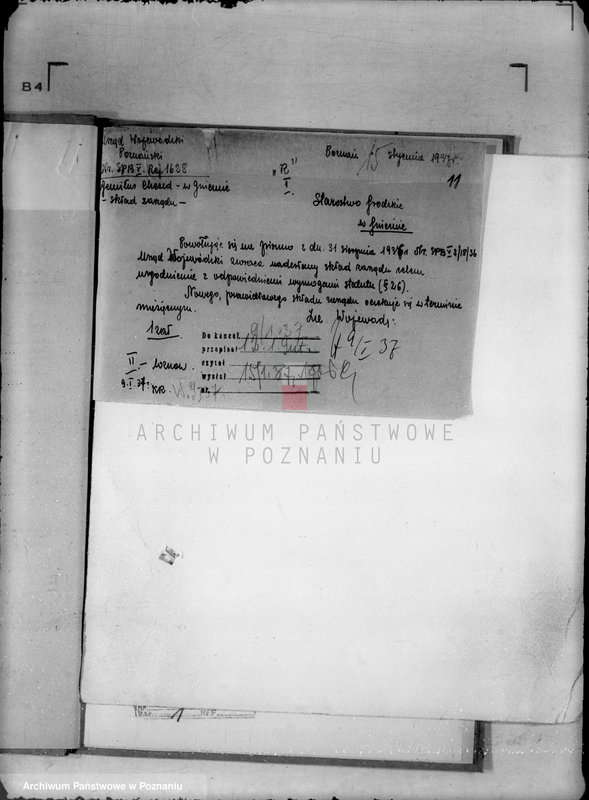 B4
Urząd Wojewódzki
Poznański
Nr. SPB V. Rej 1628
Gemilus Chesed - w Gnieźnie
- skład zarządu -
"R"
I
Poznań 15 stycznia 1937 r.
11
Starostwo Grodzkie
w Gnieźnie
Powołując się na pismo z dn. 31 sierpnia 1936 Nr. SPB V 3/18/36
Urząd Wojewódzki zwraca nadesłany skład zarządu celem
uzgodnienia z odpowiedniemi wymogami statutu (§ 26).
Nowego, prawidłowego składu zarządu oczekuje się w terminie
miesięcznym.
Za Wojewodę:
1 zał
9/I 37
Do kancel. 18/1.37
przepisał
czytał
wysłał 15/1.37.
nr.
II.- wznow.
9.I.37. KR
ARCHIWUM PAŃSTWOWE
W POZNANIU
1 REF.
Archiwum Państwowe w Poznaniu